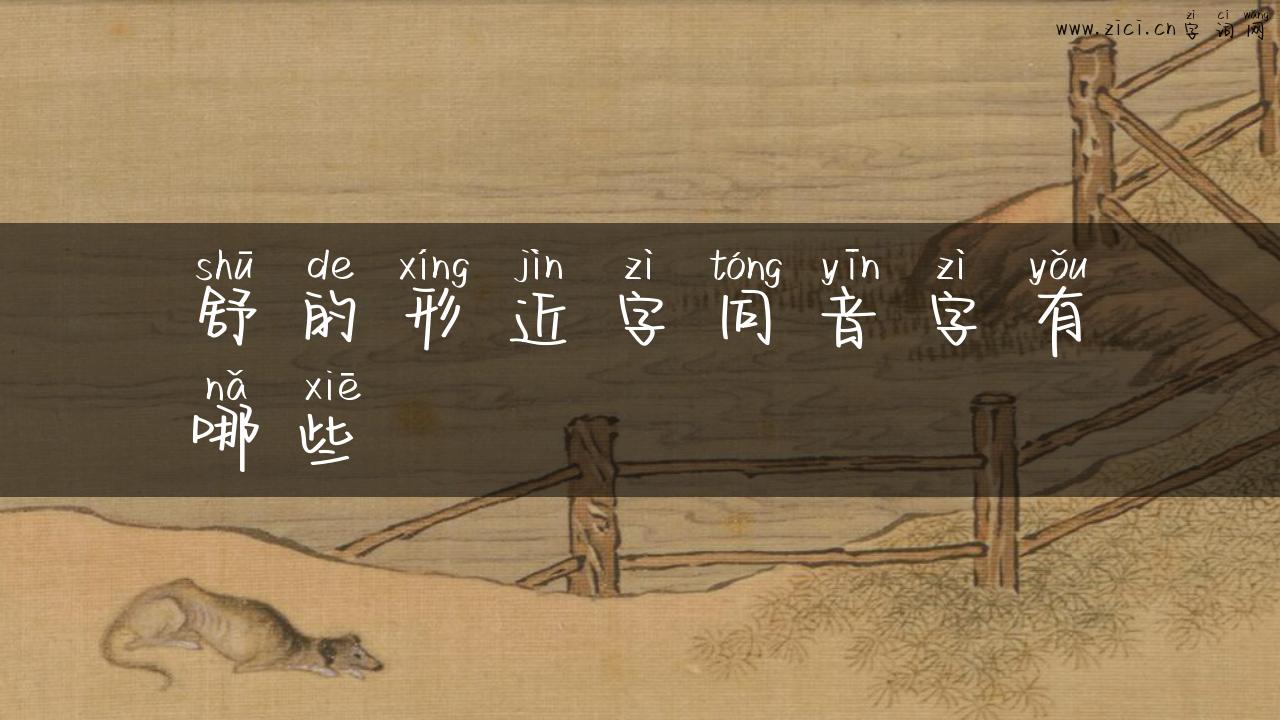 zì cí wǎng
www.zici.cn 字词网
shū de xíng jìn zì tóng yīn zì yǒu
舒的形近字同音字有
nǎ xiē
哪些